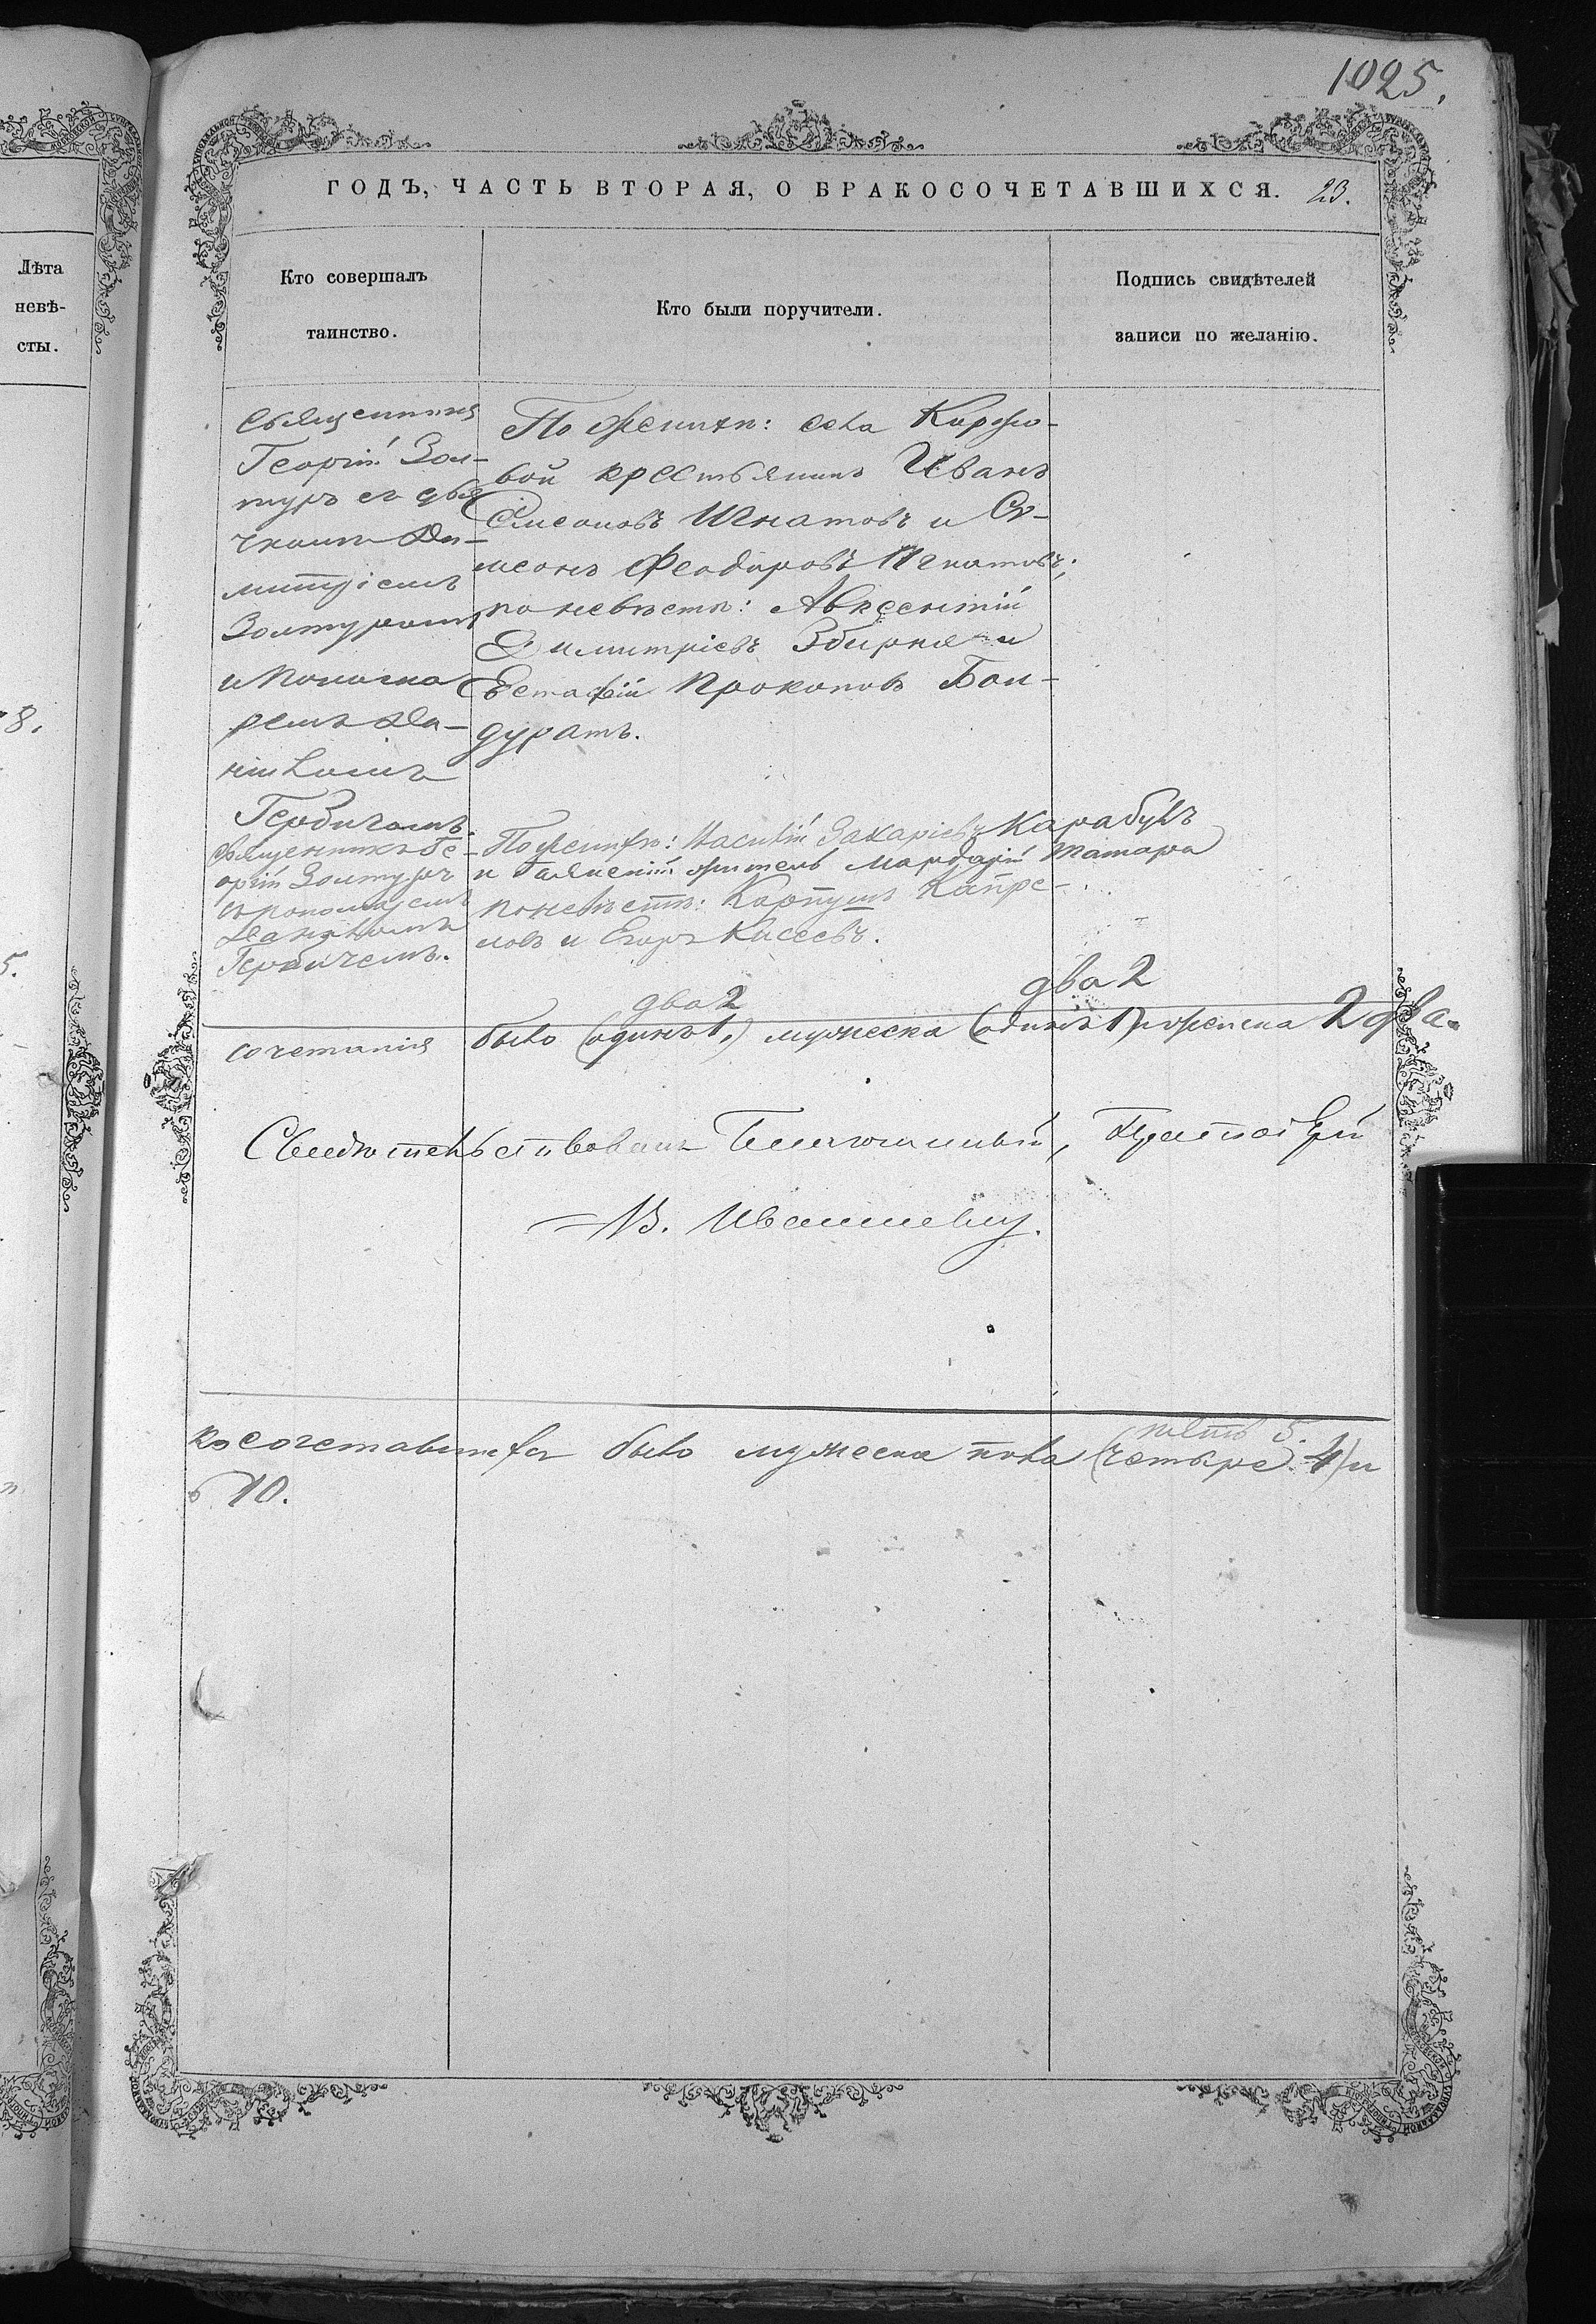 1025.
ГОДЪ, ЧАСТЬ ВТОРАЯ, О БРАКОСОЧЕТАВШИХСЯ. 23.
Лѣта
невѣ-
сты.
8.
5.
Кто совершалъ
таинство.
Кто были поручители.
Подпись свидѣтелей
записи по желанію.
Священникъ
Георгій Зол-
туръ съ дья
чкомъ Ди-
митріемъ
Золтуромъ
и Понома
ремъ Да-
ніиломъ
Гербичемъ.
По женихѣ: села
вой крестьянинъ Иванъ
Симеоновъ Игнатовъ и Си-
меонъ Феодоровъ Игнатовъ;
по невѣстѣ: Авксентій
Димитріевъ Збирня и
Евстафій Прокоповъ Бон-
дуратъ.
Священникъ Ге-
оргій Золтуръ
съ пономаремъ
Даніиломъ
Гербичемъ.
По женихѣ: Василій Захаріевъ Карабутъ
и житель Мардарій Татара
по невѣстѣ:
ловъ и Егоръ Кисеевъ.
два 2 два 2
сочетанія было (одинъ 1,) мужеска (одинъ 1) женска 2 два.
Свидѣтельствовалъ Благочинный, Протоіерей
В.
пять 5.
косочетавшихся было мужеска пола (четыре 4) и
10.